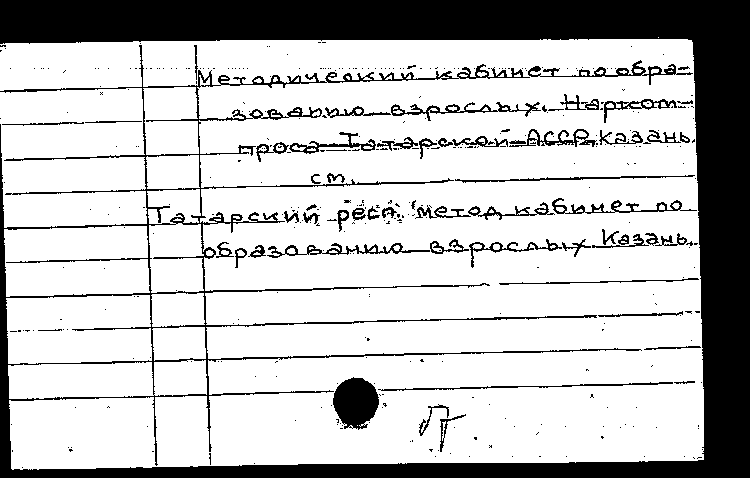 Методический кабинет по обра-
зованию взрослых. Нарком-
проса Татарской АССР, Казань.
см.
Татарский респ. метод. кабинет по
образованию взрослых. Казань.